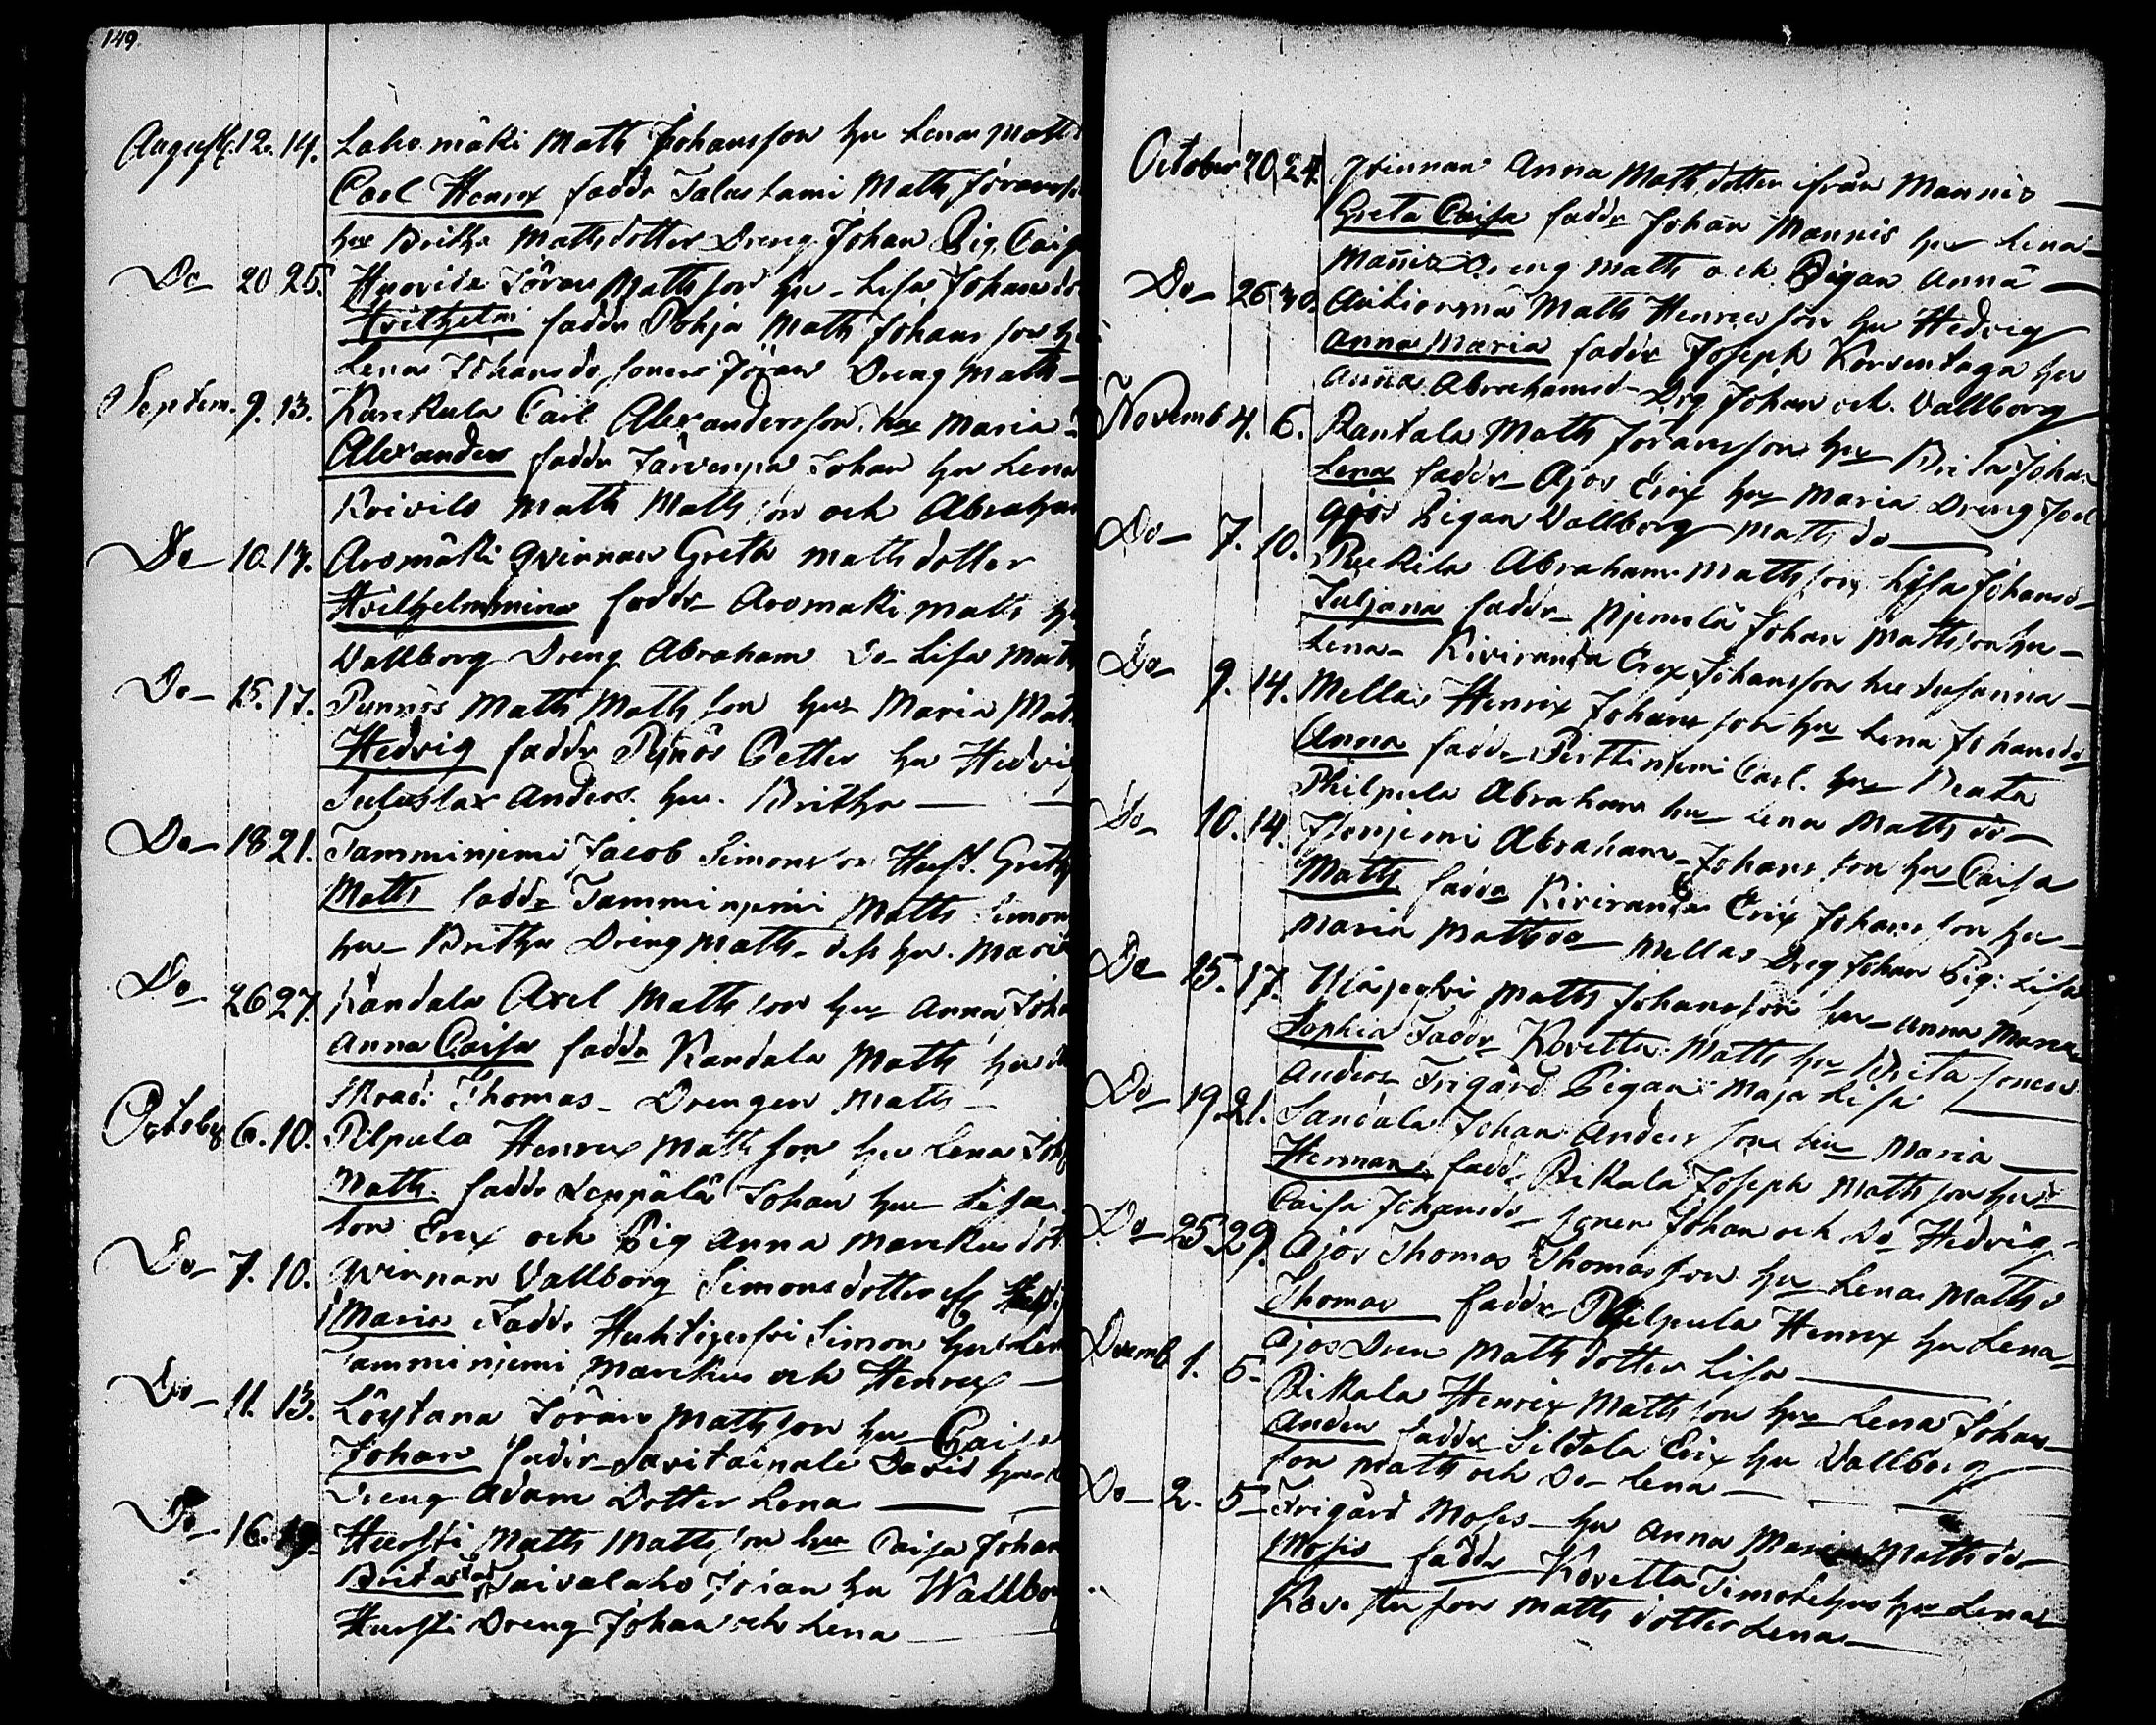 149.
August. 12. 14. Laho mäki Matts Johansson hu Lena Matts
Carl Henrex faddr Talus Lami Matts Jöransso
hu Britha Mattsdotter Dreng Johan Pig. Caisa
Do 20 25. Huovila Jöran Mattsson hu - Lisa Johansdo
Wilhelm faddr Pohja Matts Johansson hu
Lena Johansdo sonen Jöran Dreng Matts -
Septem. 9. 13. Karekula Carl Alexandersson hu Maria -
Alexander faddr Järvenpä Johan hu Lena
Koivilo Matts Mattsson och Abraham
Do - 10. 14. Aromäki qvinnan Greta Matts dotter
Wilhelmmina faddr - Aromäki Matts hu
Vallborg Dreng Abraham Do Lisa Matts
Do - 15. 17. Punnös Matts Matts son hu Maria Mat
Hedvig faddr Pynös Petter hu Hedvig
Anders hu. Britha —
Do - 18 21. Tamminjemi Jacob Simonsson Hust. Greth
Matts faddr Tamminjemi Matts Simon
hu - Britha Dreng Matts - dess hu. Mari
Do 26 27. Kandala Axel Matts son hu Anna Joha
Anna Caisa faddr Kandala Matts hu
Skrad: Thomas - Drengen Matts -
October 6. 10. Pilpula Henrex Matts son hu Lena Joh
Matts faddr Leppälä Johan hu - Lisa
son Erex och Pig Anna Marckus dot
Do - 7. 10. Qvinnan Vallborg Simonsdotter
Maria Faddr Simon hu Lena
Tamminjemi Marckus och Henrex —
Do - 11. 13. Löytana Jöran Mattsson hu - Caisa
Johan faddr - Savitainale David hu
Dreng Adam Dotter Lena —
Do - 16. 19. Hursti Matts Mattsson hu Caisa Johan
Brita fad Taivalaho Jöran hu Wallbor
Hursti Dreng Johan och Lena —
October 20 24. Qvinnan Anna Matts dotter ifrån Mannis —
Greta Caisa faddr Johan Mannis hu Lena -
Mañis Dreng Matts och Pigan Anna —
Do - 26 30. Matts Henrex son hu Hedvig
Anna Maria faddr Joseph Korsentaga hu
Anna Abrahamsd - Drg Johan och Vallborg
Novemb 4. 6. Rantala Matts Jöransson hu Brita Johan
Lena faddr - Ajos Erex hu Maria Dreng Joel
Ajos Pigan Vallborg Matts do —
Do - 7. 10. Ruckila Abraham Mattsson Lisa Johansd -
Juljana faddr - Njemelä Johan Mattsson hu -
Lena - Kiviranda Erex Johansson hu Susanna -
Do - 9. 14. Mellas Henrix Johans son hu Lena Johansdo
Anna faddr - Perttinjemi Carl. hu - Beata
Philpula Abraham hu - Lena Matts do -
Do - 10. 14. Abraham - Johans son hu Caisa
Matts faddr Kiviranda Erix Johans son hu -
Maria Mattsdo - Mellas Dreg Johan Pig: Lisa
Do 15. 17. Matts Johansson hu - Anna Maria
Sophia Faddr - Kovetta Matts hu Brita sonen
Anders Frigård Pigan Maja Lisa
Do - 19. 21. Sandala Johan Anders son hu - Maria —
Herman faddr - Rikala Joseph Mattsson hu -
Caisa Johansdo - sonen Johan och Do Hedvig -
Do - 25 29. Ajos Thomas Thomasson hu - Lena Matts d
Thomas faddr - Pilpula Henrex hu Lena -
Ajos Dren Matts dotter Lisa —
Decemb. 1. 5 - Rikala Henrix Matts son hu - Lena Johan -
Anders faddr Siltala Erix hu Vallborg
son Matts och Do - Lena —
Do - 2. 5 - Frigård Moses - hu Anna Maria Matts do -
Moses faddr - Kovetta Timotheus hu - Lena -
son Matts dotter Lena —